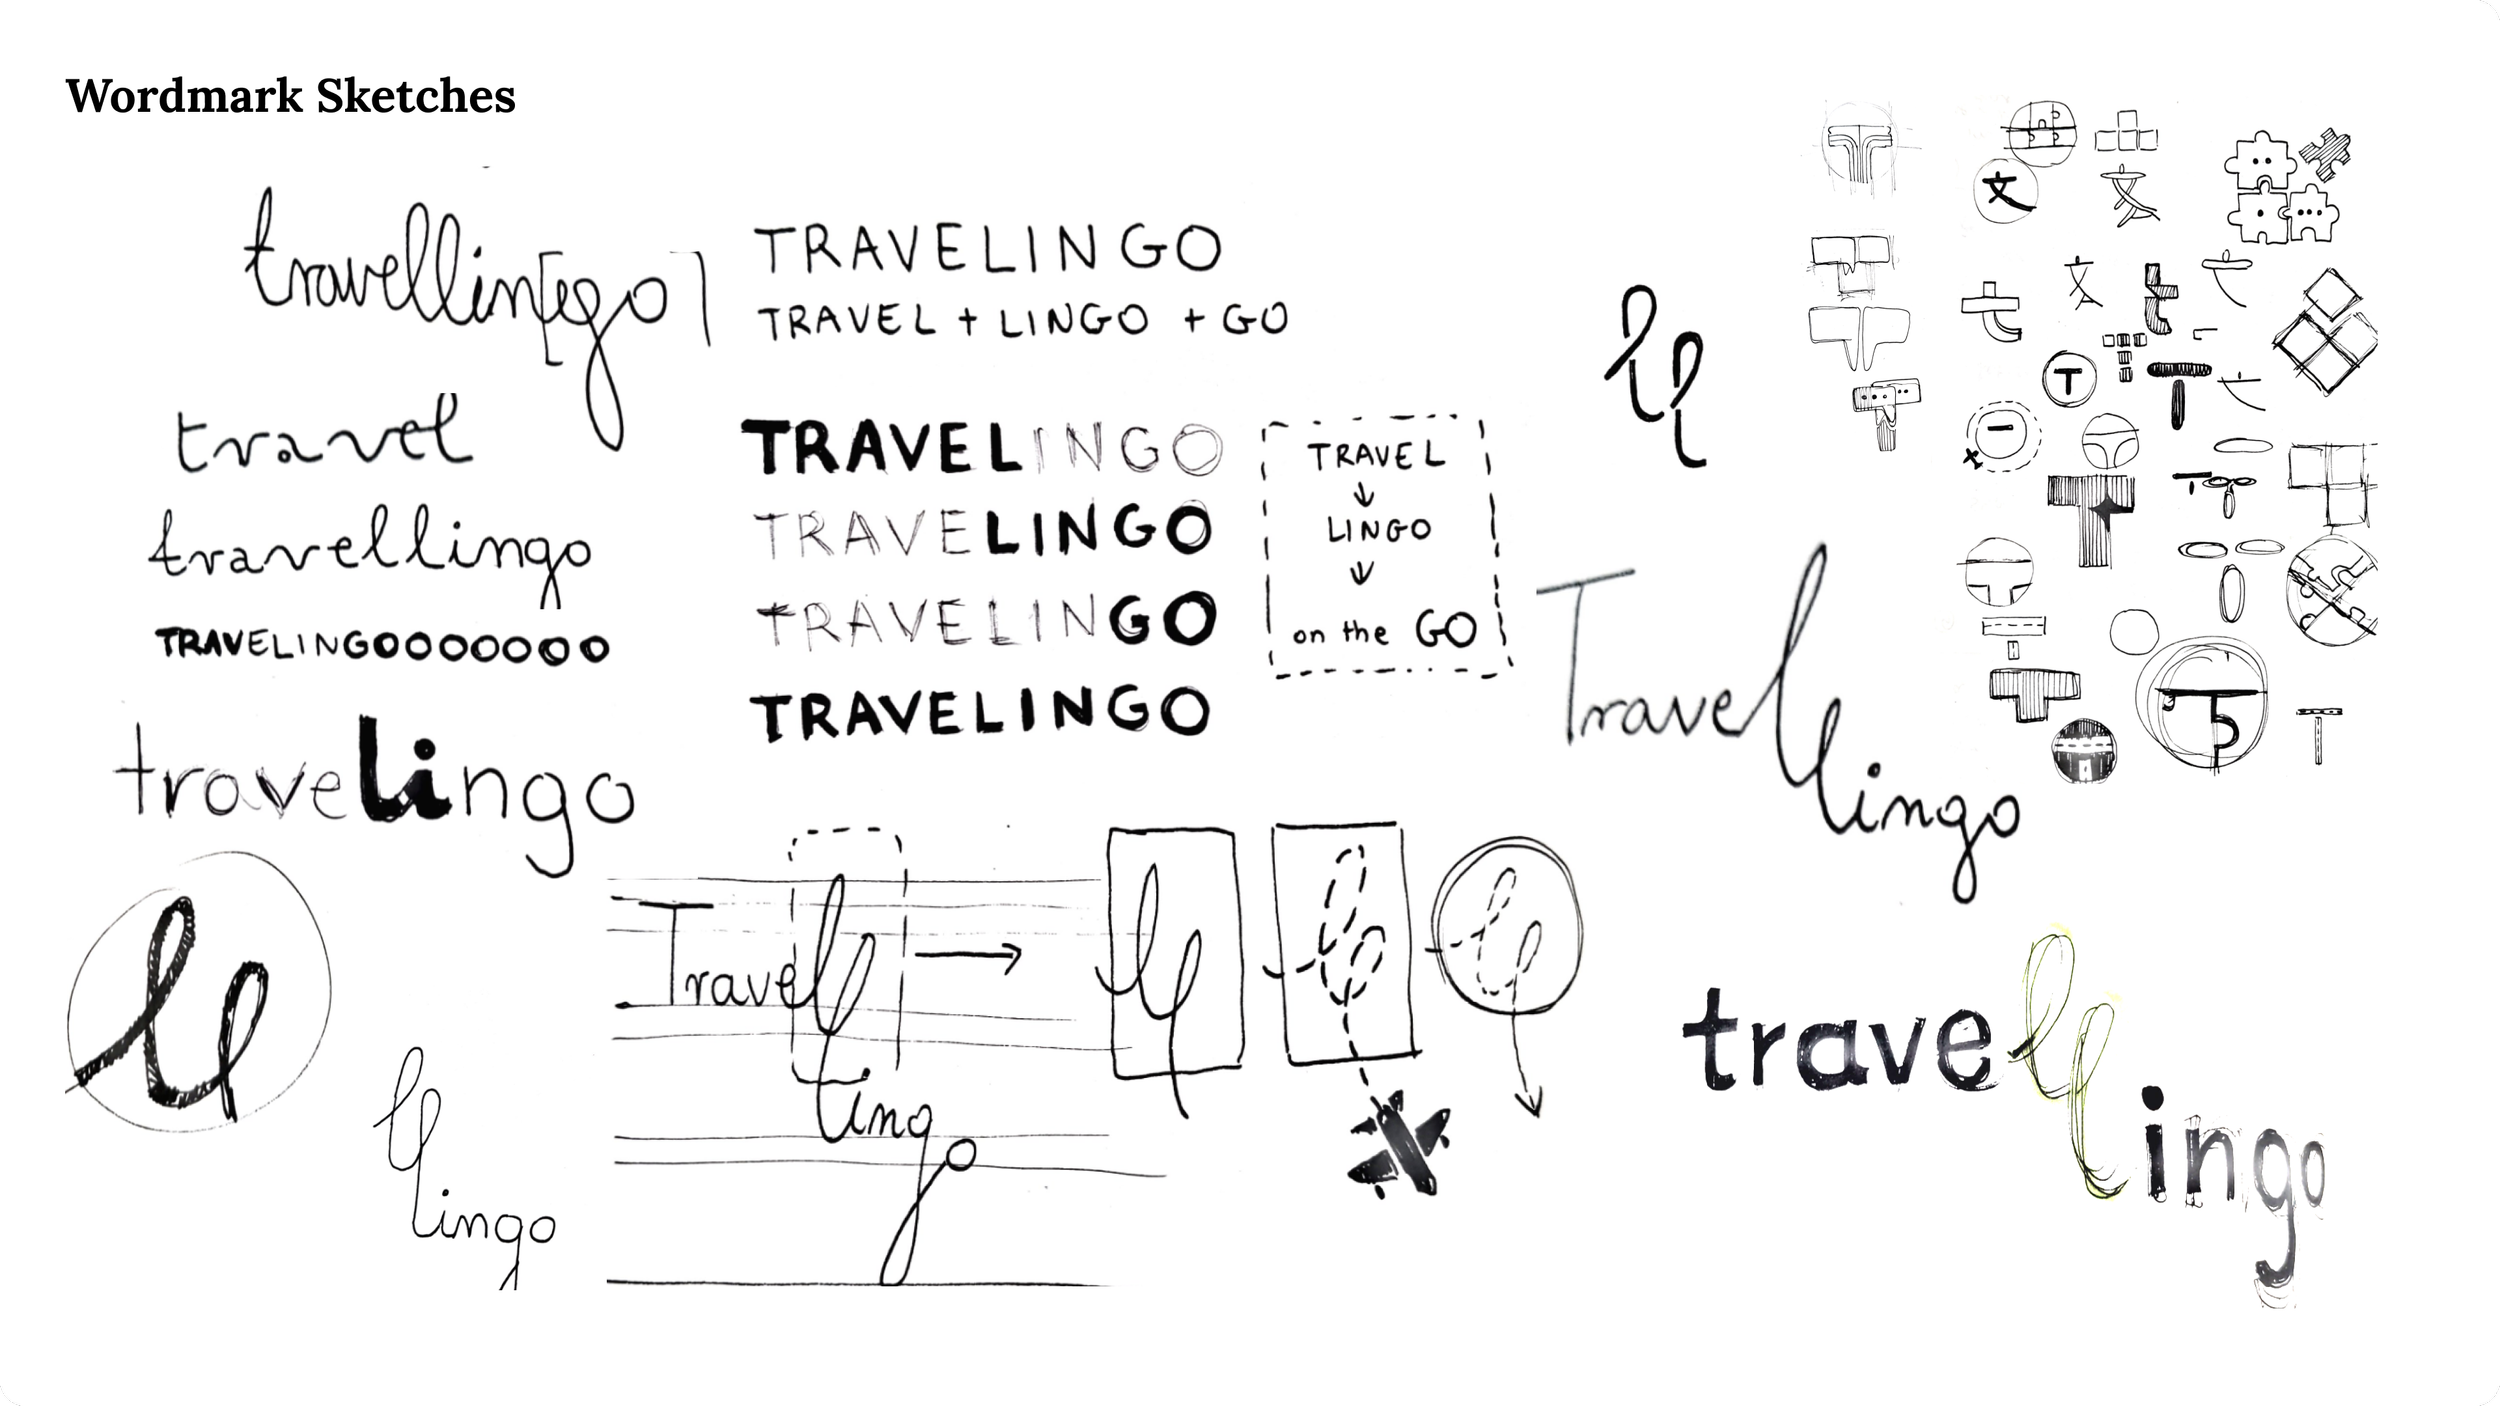 Wordmark Sketches
travellin[ego]
TRAVELINGO
TRAVEL + LINGO + GO
travel
travellingo
TRAVELINGOOOOOOO
travelingo
TRAVELINGO
TRAVELINGO
TRAVELINGO
TRAVELINGO
TRAVEL
↓
LINGO
↓
on the GO
ll
Travel
lingo
文
文
t
T
T
ll
ll
lingo
Travell
lingo
ll
ll
ll
travell
lingo